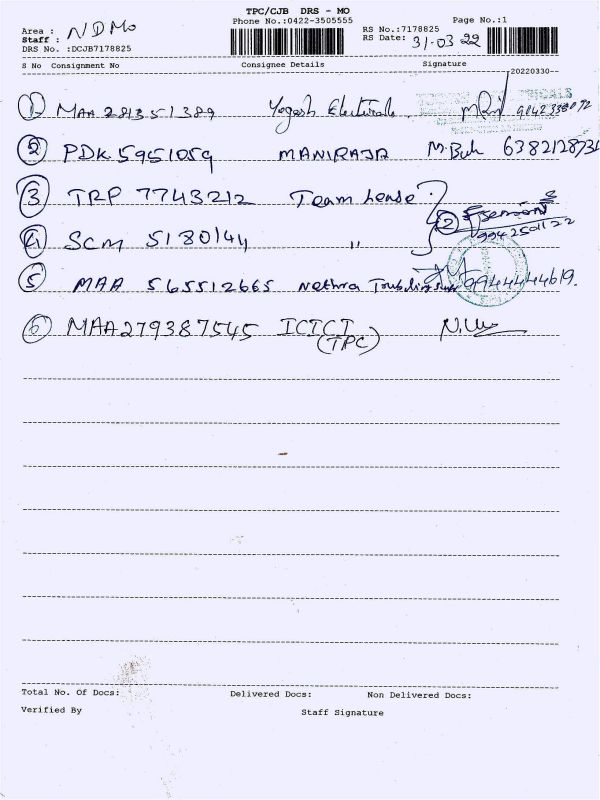 TPC/CJB DRS - MO
Phone No.:0422-3505555 Page No.:1
Area : NDMo RS No.:7178825
Staff : RS Date: 31-03 22
DRS No. :DCJB7178825
S No Consignment No Consignee Details Signature
20220330--
1 MAA 281351389 Yogesh Electricals 9842338072
2 PDK 5951059 MANIRAJA 638212873
3 TRP 7743212 Team Lease 2
4 SCM 5180144 " 9942501122
5 MAA 565512665 Nethra 9944444619.
6 MAA279387545 ICICI
(TPC)
Total No. Of Docs: Delivered Docs: Non Delivered Docs:
Verified By Staff Signature